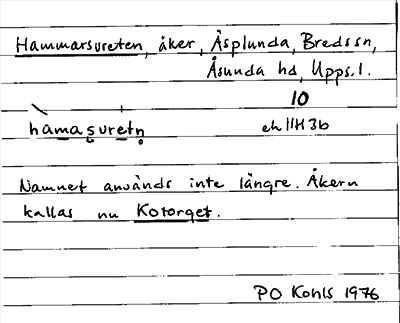 Hammarsvreten, åker, Äsplunda, Bredssn,
Åsunda hd, Upps.l.
10
hamasvretn ek 11H3b
Namnet används inte längre. Åkern
kallas nu Kotorget.
PO Kohls 1976